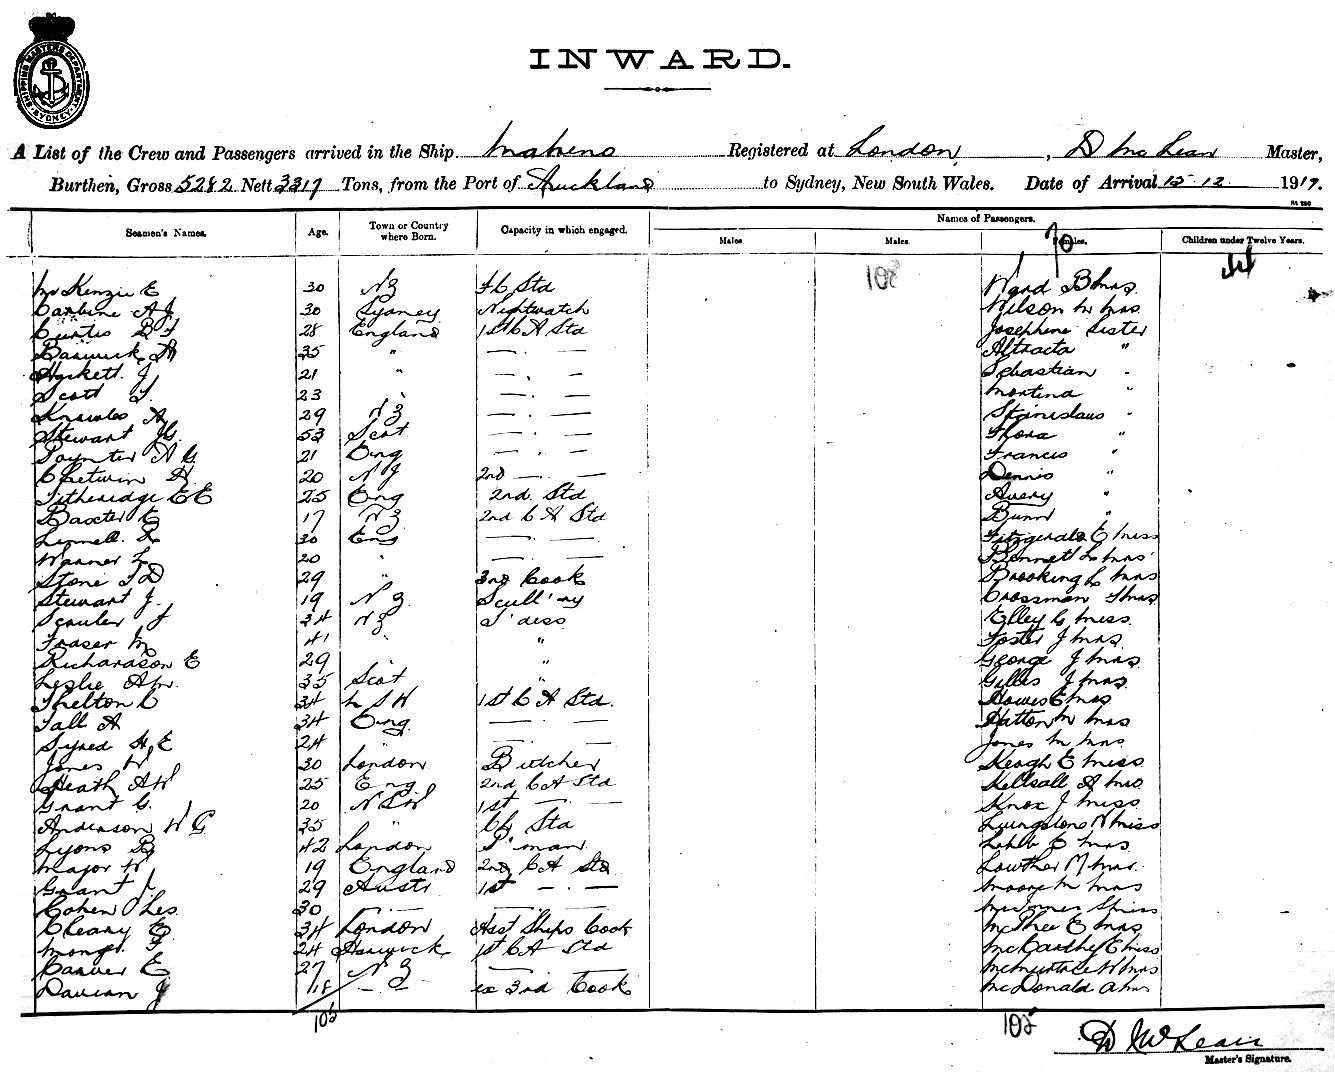 SHIPPING MASTERS DEPARTMENT SYDNEY
INWARD.
A List of the Crew and Passengers arrived in the Ship Maheno Registered at London, D McLean Master,
Burthen, Gross 5282 Nett 3317 Tons, from the Port of Auckland to Sydney, New South Wales. Date of Arrival 15 12 1917.
Names of Passengers.
Seamen's Names. Age. Town or Country where Born. Capacity in which engaged. Males. Males. Females. Children under Twelve Years.
70
108 44
McKenzie E 30 NZ Std Ward B Mrs
Carbine A J 30 Sydney Nightwatch Wilson M Mrs
Curtis B F 28 England 1st C A Std Josephine Sister
Barwick A 35 " — . — Attracta "
Hackett J 21 " — . — Sebastian "
Scott 23 — . — "
Knowles A 29 NZ — . — Stanislaus "
Stewart J G 53 Scot — . — Flora "
Poynter A G 21 Eng — . — Francis "
Chetwin A 20 NZ 2nd — . — Dennis "
Titheridge E E 25 Eng 2nd Std Avery "
Baxter E 17 NZ 2nd C A Std Bunn "
Linnell 30 Eng — . — Fitzgerald E Miss
Warner L 20 " — . — Bennett L Mrs
Stone F D 29 " 3rd Cook Brooking L Mrs
Stewart J. 19 NZ Scull'ry Crossman Mrs
Scouler J 34 NZ Elley C Miss
Fraser M 41 " " Foster J Mrs
Richardson E 29 " George J Mrs
Leslie A W. 35 Scot " Gillies J Mrs
Shelton C 34 1st C A Std. Howes E Mrs
Tall A 34 Eng — . — Hatton M Mrs
Syred H E 24 " — . — Jones M Mrs
Jones W 30 London Butcher Keogh E Miss
Heath A W 25 Eng 2nd C A Std Kellsall A Mrs
Grant G. 20 NSW 1st — . — Knox J Miss
Anderson W G 35 " Std Livingstone N Miss
Lyons B 42 London P'man E Mrs
Major W 19 England 2nd C A Std Lowther M Mrs.
Grant 29 Austr 1st — . — Moore M Mrs
Cohen Chas 30 — . — Miss
Cleary E 34 London Asst Ships Cook McPhee E Mrs
F 24 Harwick 1st C A Std McCarthy E Miss
Carver E 27 NZ McMurtrie Mrs
J 18 — " — ex 3rd Cook McDonald A Mrs
105 108
D McLean
Master's Signature.